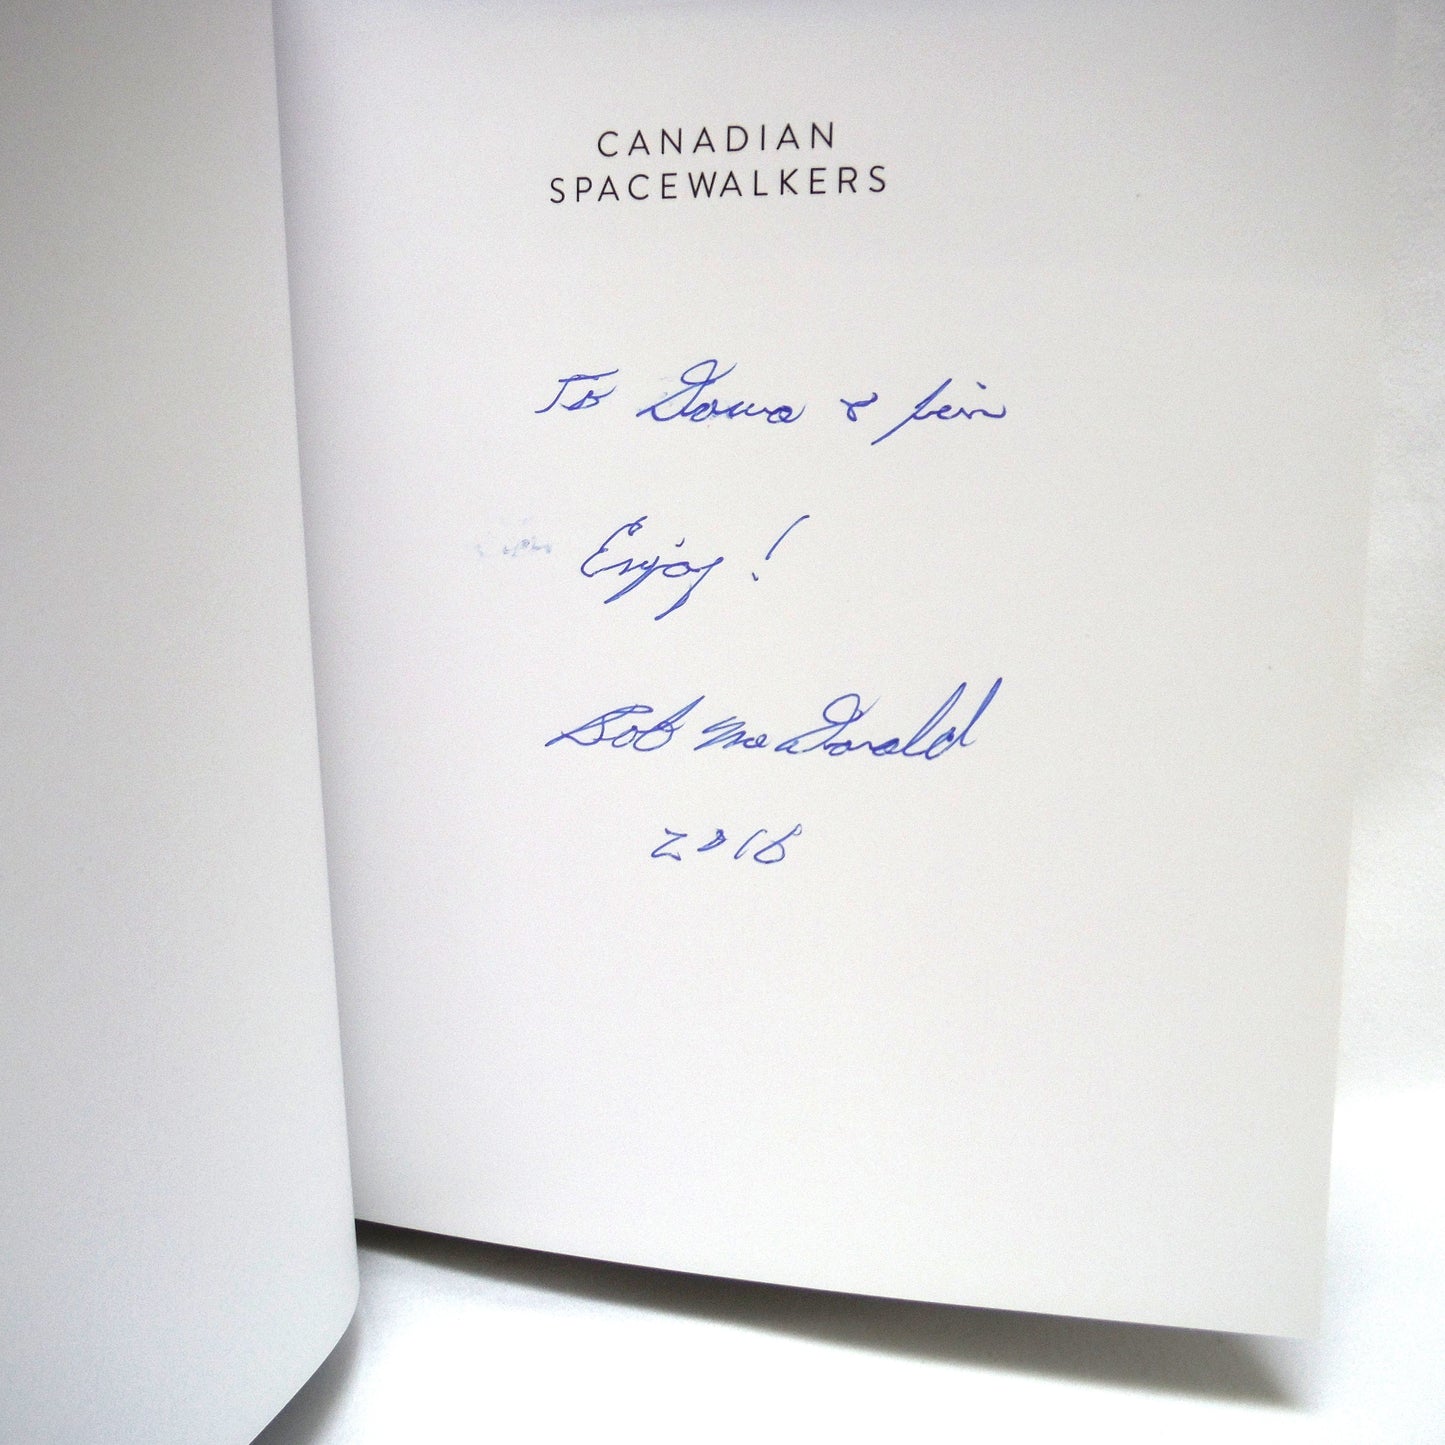 CANADIAN
SPACEWALKERS
To Donna & Jim
Enjoy!
Bob McDonald
2016